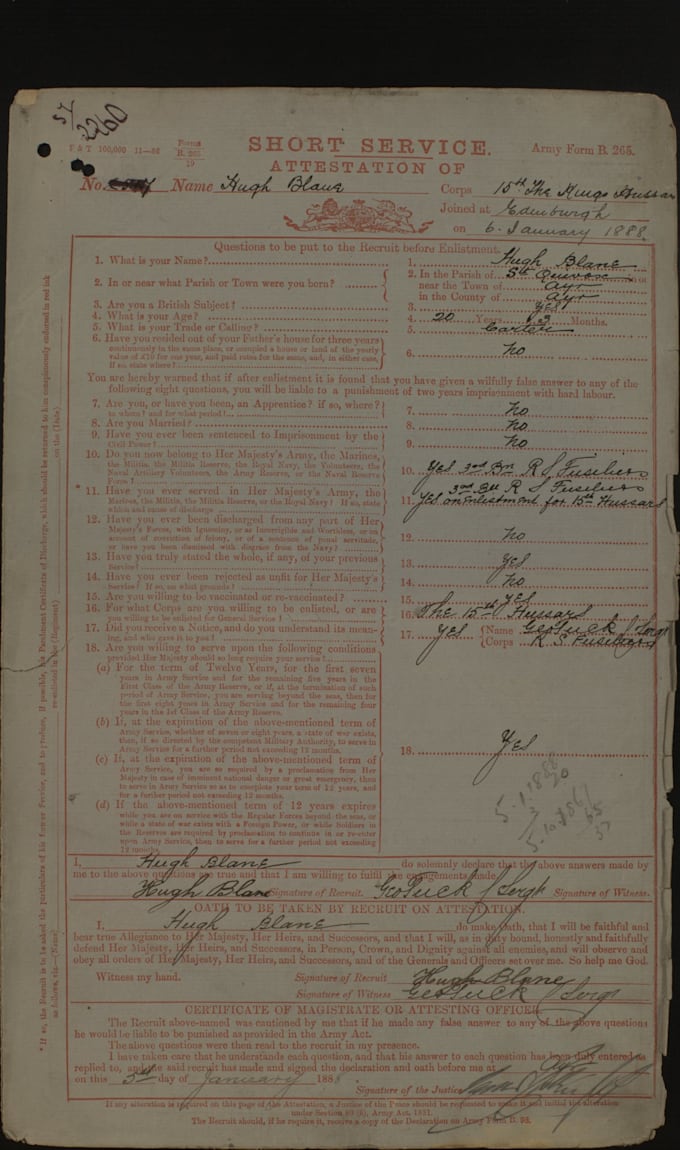 57
2260
P & T 100,000 11—86 Forms B. 265 19
SHORT SERVICE. Army Form B. 265.
ATTESTATION OF
No. Name Hugh Blane Corps 15th The Kings Hussars
Joined at Edinburgh
on 6. January 1888.
Questions to be put to the Recruit before Enlistment.
1. What is your Name? 1. Hugh Blane
2. In or near what Parish or Town were you born? 2. In the Parish of St Quivox in or
near the Town of Ayr
in the County of Ayr
3. Are you a British Subject? 3. Yes
4. What is your Age? 4. 20 Years 3 Months.
5. What is your Trade or Calling? 5. Carter
6. Have you resided out of your Father's house for three years
continuously in the same place, or occupied a house or land of the yearly
value of £10 for one year, and paid rates for the same, and, in either case,
if so, state where? 6. No
You are hereby warned that if after enlistment it is found that you have given a wilfully false answer to any of the
following eight questions, you will be liable to a punishment of two years imprisonment with hard labour.
7. Are you, or have you been, an Apprentice? if so, where?
to whom? and for what period? 7. No
8. Are you Married? 8. No
9. Have you ever been sentenced to Imprisonment by the
Civil Power? 9. No
10. Do you now belong to Her Majesty's Army, the Marines,
the Militia, the Militia Reserve, the Royal Navy, the Volunteers, the
Naval Artillery Volunteers, the Army Reserve, or the Naval Reserve
Force? 10. Yes 3rd Bn R S Fusiliers
* 11. Have you ever served in Her Majesty's Army, the
Marines, the Militia, the Militia Reserve, or the Royal Navy? If so, state
which and cause of discharge 3rd Bn R S Fusiliers
11. Yes on Enlistment for 15th Hussars
12. Have you ever been discharged from any part of Her
Majesty's Forces, with Ignominy, or as Incorrigible and Worthless, or on
account of conviction of felony, or of a sentence of penal servitude,
or have you been dismissed with disgrace from the Navy? 12. No
13. Have you truly stated the whole, if any, of your previous
Service? 13. Yes
14. Have you ever been rejected as unfit for Her Majesty's
Service? If so, on what grounds? 14. No
15. Are you willing to be vaccinated or re-vaccinated? 15. Yes
16. For what Corps are you willing to be enlisted, or are
you willing to be enlisted for General Service? 16. The 15th Hussars
17. Did you receive a Notice, and do you understand its mean-
ing, and who gave it to you? 17. Yes Name Geo Tuck Sergt
Corps R. S. Fusiliers
18. Are you willing to serve upon the following conditions
provided Her Majesty should so long require your service?
(a) For the term of Twelve Years, for the first seven
years in Army Service and for the remaining five years in the
First Class of the Army Reserve, or if, at the termination of such
period of Army Service, you are serving beyond the seas, then for
the first eight years in Army Service and for the remaining four
years in the 1st Class of the Army Reserve.
(b) If, at the expiration of the above-mentioned term of
Army Service, whether of seven or eight years, a state of war exists,
then, if so directed by the competent Military Authority, to serve in
Army Service for a further period not exceeding 12 months.
(c) If, at the expiration of the above-mentioned term of
Army Service, you are so required by a proclamation from Her
Majesty in case of imminent national danger or great emergency, then
to serve in Army Service so as to complete your term of 12 years, and
for a further period not exceeding 12 months.
(d) If the above-mentioned term of 12 years expires
while you are on service with the Regular Forces beyond the seas, or
while a state of war exists with a Foreign Power, or while Soldiers in
the Reserves are required by proclamation to continue in or re-enter
upon Army Service, then to serve for a further period not exceeding
12 months.
18. Yes
5.1.1888
3 20
5.10.1867
I, Hugh Blane do solemnly declare that the above answers made by
me to the above questions are true and that I am willing to fulfil the engagements made.
Hugh Blane Signature of Recruit. Geo Tuck Sergt Signature of Witness.
OATH TO BE TAKEN BY RECRUIT ON ATTESTATION.
I, Hugh Blane do make oath, that I will be faithful and
bear true Allegiance to Her Majesty, Her Heirs, and Successors, and that I will, as in duty bound, honestly and faithfully
defend Her Majesty, Her Heirs, and Successors, in Person, Crown, and Dignity against all enemies, and will observe and
obey all orders of Her Majesty, Her Heirs, and Successors, and of the Generals and Officers set over me. So help me God.
Witness my hand. Signature of Recruit Hugh Blane
Signature of Witness Geo Tuck Sergt
CERTIFICATE OF MAGISTRATE OR ATTESTING OFFICER
The Recruit above-named was cautioned by me that if he made any false answer to any of the above questions
he would be liable to be punished as provided in the Army Act.
The above questions were then read to the recruit in my presence.
I have taken care that he understands each question, and that his answer to each question has been duly entered as
replied to, and the said recruit has made and signed the declaration and oath before me at Ayr
on this 5th day of January 1888
Signature of the Justice
If any alteration is required on this page of the Attestation, a Justice of the Peace should be requested to make it and initial the alteration
under Section 80 (6), Army Act, 1881.
The Recruit should, if he require it, receive a copy of the Declaration on Army Form B. 98.
* If so, the Recruit is to be asked the particulars of his former Service, and to produce, if possible, his Parchment Certificate of Discharge, which should be returned to him conspicuously endorsed in red ink
as follows, viz.—(Name) re-enlisted in the (Regiment) on the (Date).